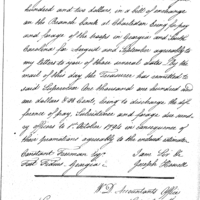 hundred and two dollars, in a bill of exchange
on the Branch bank at Charleston being for pay
and forage of the troops in Georgia and South
Carolina for August and September agreeably to
my letters to you of these several dates. By the
mail of this day the Treasurer has remitted to
said Supervisor One thousand one hundred and
one dollars & 86 Cents, being to discharge the dif-
ference of pay, Subsistence and forage due sund-
ry officers to 1st October 1794 in consequence of
their promotions agreeably to the enclosed estimate.
Constant Freeman Esqr. I am Sir &c.
Fort Fidius, Georgia Joseph Howell
W.D. Accountants Office